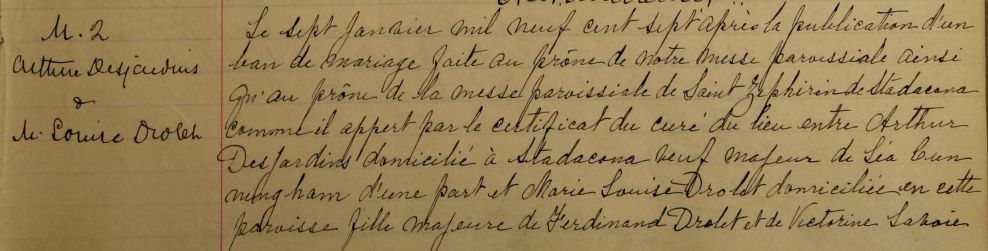 M. 2
Arthur Desjardins
&
M. Louise Drolet
Le sept Janvier mil neuf cent sept après la publication d'un
ban de mariage faite au prône de notre messe paroissiale ainsi
qu'au prône de la messe paroissiale de Saint Zéphirin de Stadacona
comme il appert par le certificat du curé du lieu entre Arthur
Desjardins domicilié à Stadacona veuf majeur de Léa Cun
ningham d'une part et Marie Louise Drolet domiciliée en cette
paroisse fille majeure de Ferdinand Drolet et de Victorine Savoie